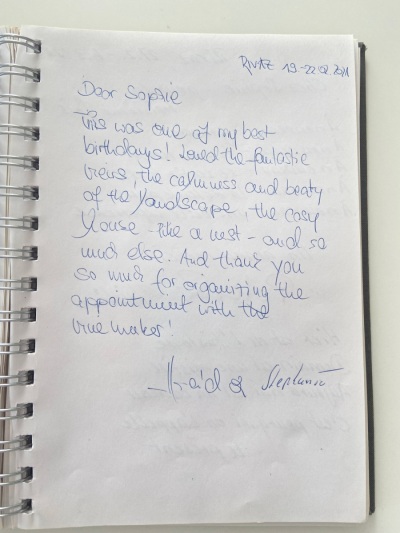 Rivaz 19-22.02.2021
Dear Sophie
This was one of my best
birthdays! Loved the fantastic
views, the calmness and beaty
of the landscape, the cosy
house - like a nest - and so
much else. And thank you
so much for organizing the
appointment with the
vine maker!
& Stephanie